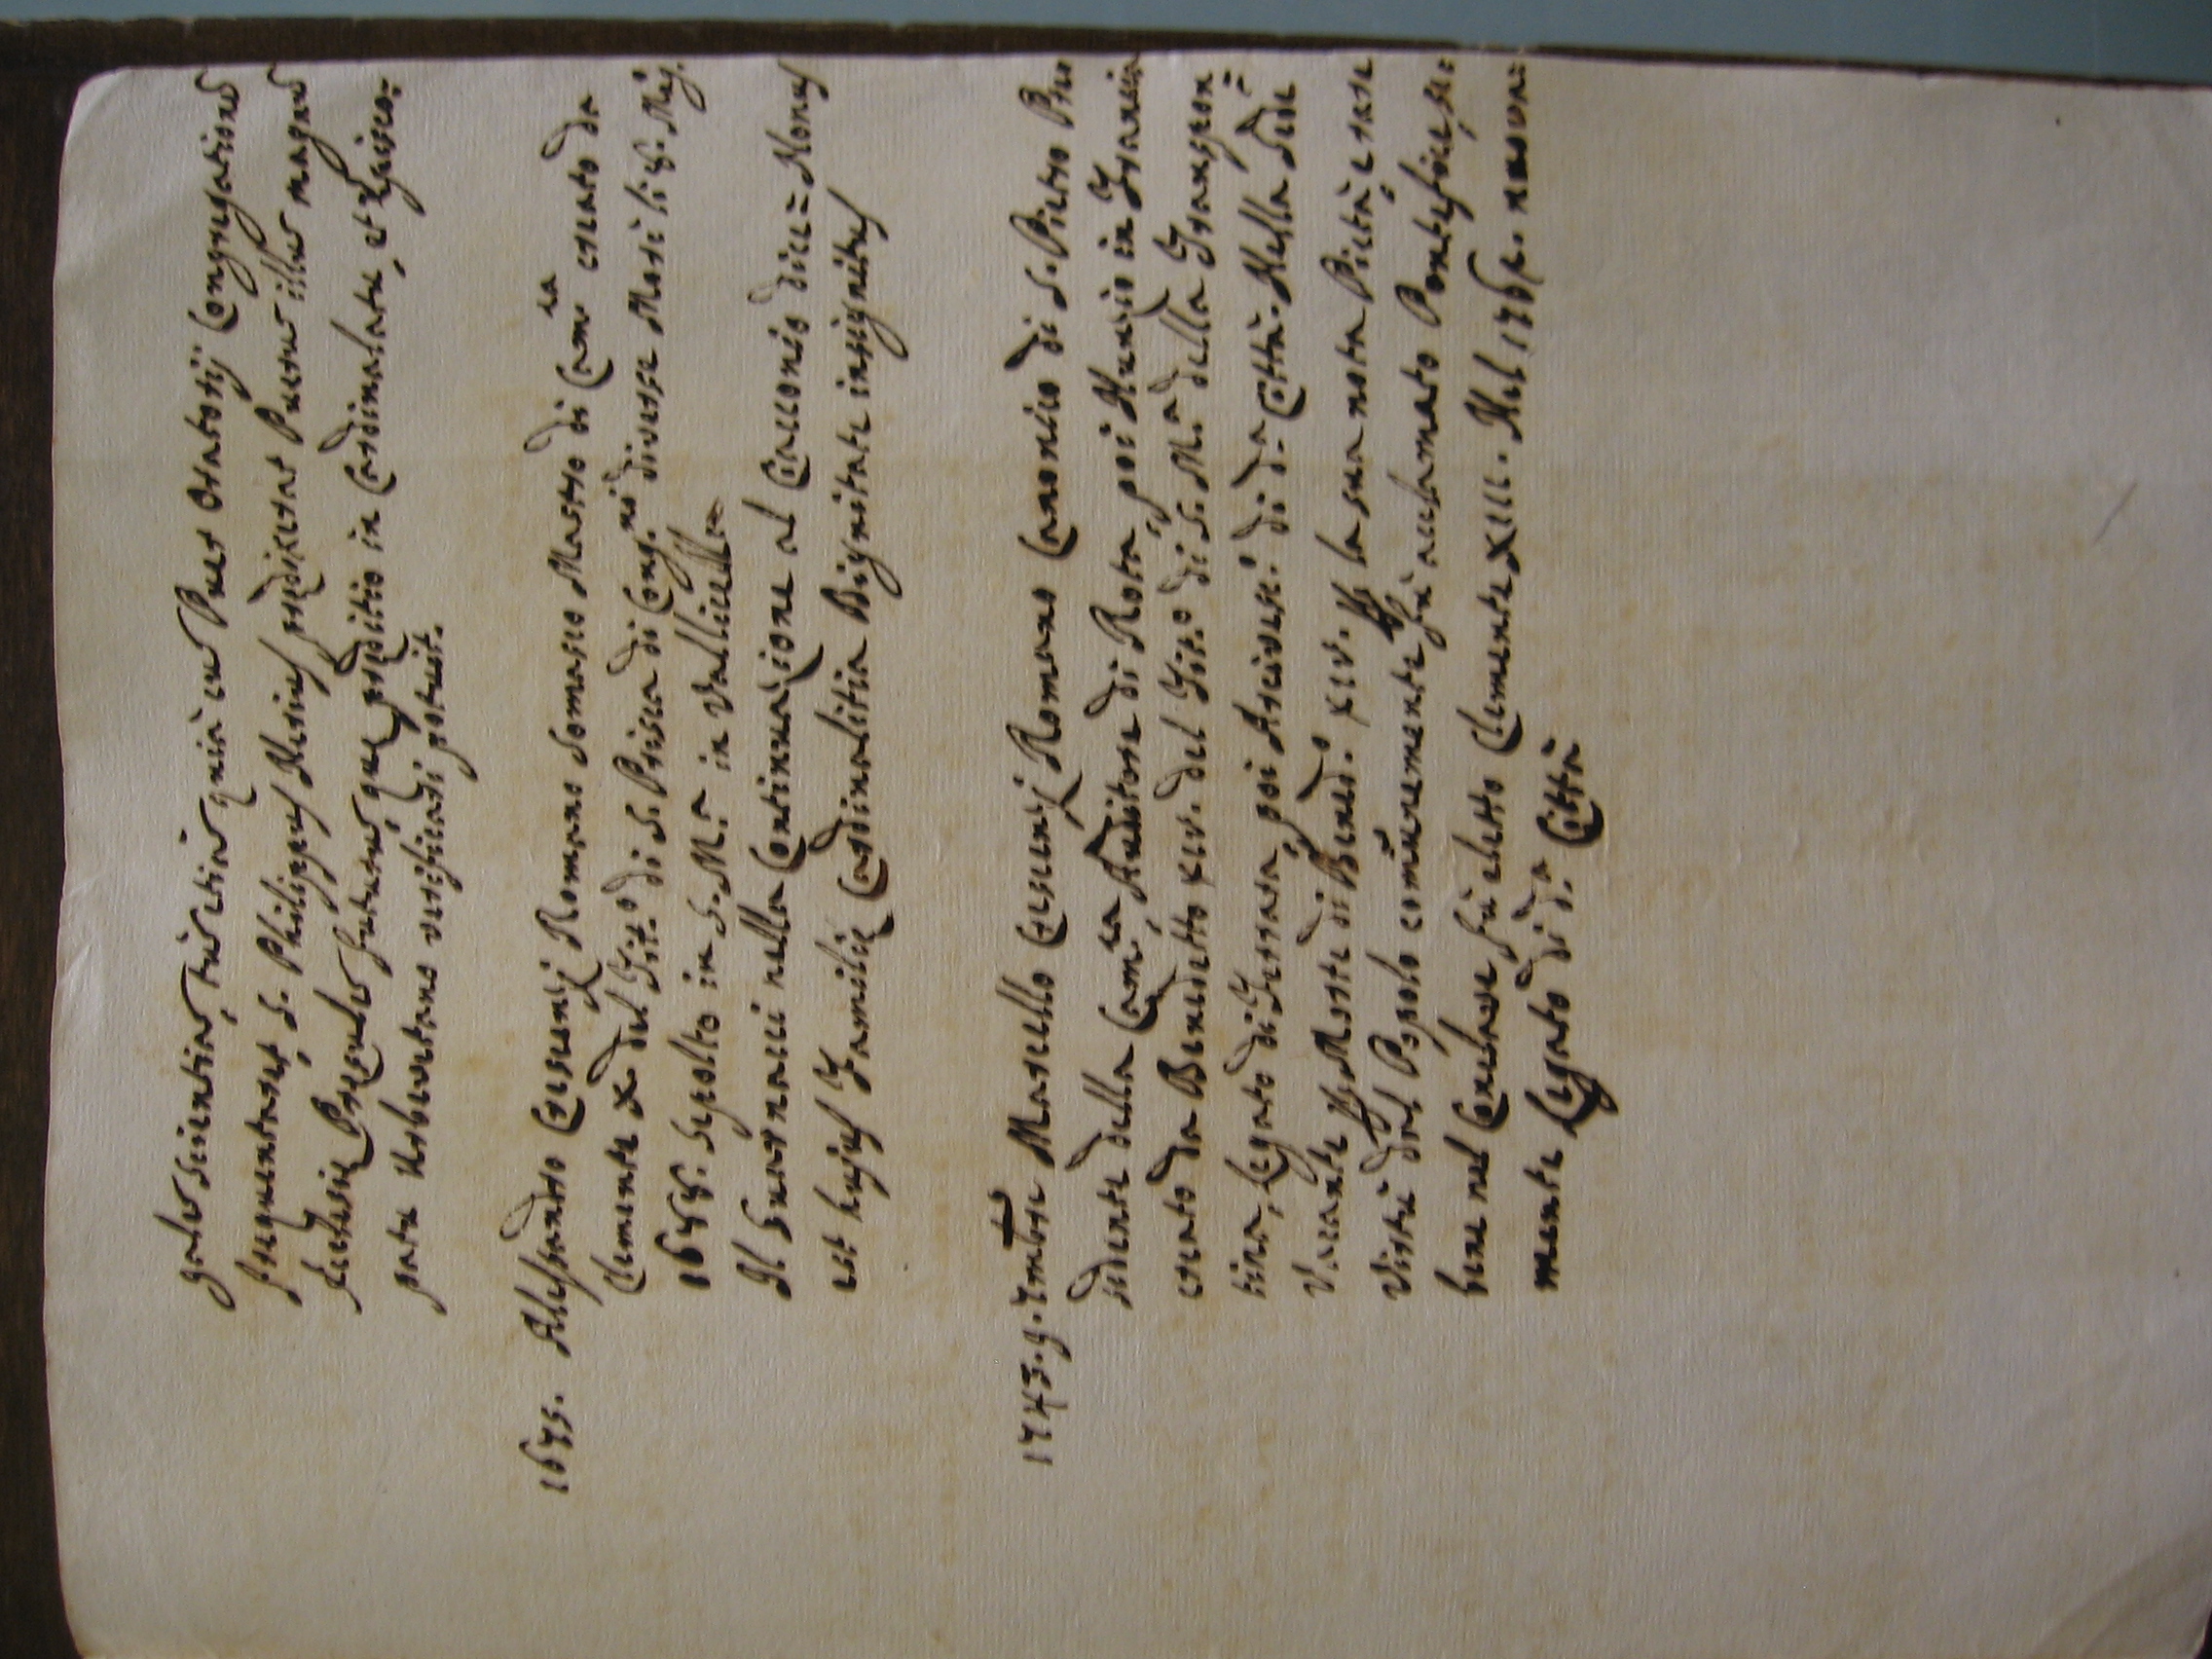 gales scientias, tùm etiam quia cum Pues Oratorij Congregationis
frequentaret, S. Philippus Nerius predixerat Puerum illum magnum
Ecclesie Presulem futurum, que predictio in Cardinalatu, et Episco=
patu Uxbevetano verificari potuit.
1675. Alessandro Crescenzj Romano Somasco Mastro di Cam.ra creato da
Clemente X. del Tit.o di S. Prisca di Cong.ni diverse Morì li 8. Mag.
1688. sepolto in S. M.a in Vallicella
Il Guarnacci nella Continuazione al Ciacconio dice = Nonus
est hujus Familie Cardinalitia Dignitate insignitus
1743. 9. 7mbre Marcello Crescenzj Romano Canonico di S. Pietro Pre
sidente della Cam.ra, Auditore di Rota, poi Nunzio in Francia
creato da Benedetto XIV. del Tit.o di S. M.a della Transpon=
tina, Legato di Ferrara, poi Arcives.o di d.a Città. Nella Sede
Vacante p Morte di Bened.o XIV. p la sua nota Pietà, e rare
Virtù dal Popolo comũnemente fù acclamato Pontefice, se:
bene nel Conclave fù eletto Clemente XIII. Nel 1761. nuova:
mente Legato di d.a Città